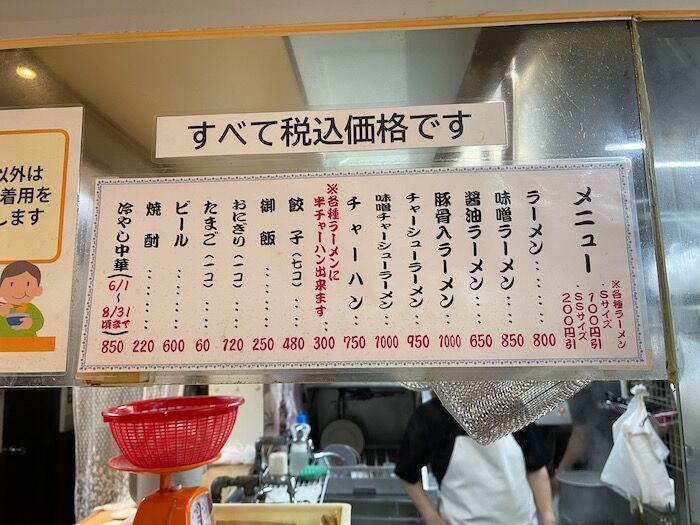 すべて税込価格です
メニュー
※各種ラーメン
・Sサイズ
100円引
・SSサイズ
200円引
ラーメン・・・・・800
味噌ラーメン・・・850
醤油ラーメン・・・650
豚骨入ラーメン・・1000
チャーシューラーメン・・950
味噌チャーシューラーメン・・1000
チャーハン・・750
※各種ラーメンに
半チャーハン出来ます・・300
餃子(七コ)・・480
御飯・・・・・250
おにぎり(一コ)・・120
たまご(一コ)・・60
ビール・・・・600
焼酎・・・・・220
冷やし中華(6/1~8/31頃まで)850
以外は
着用を
します